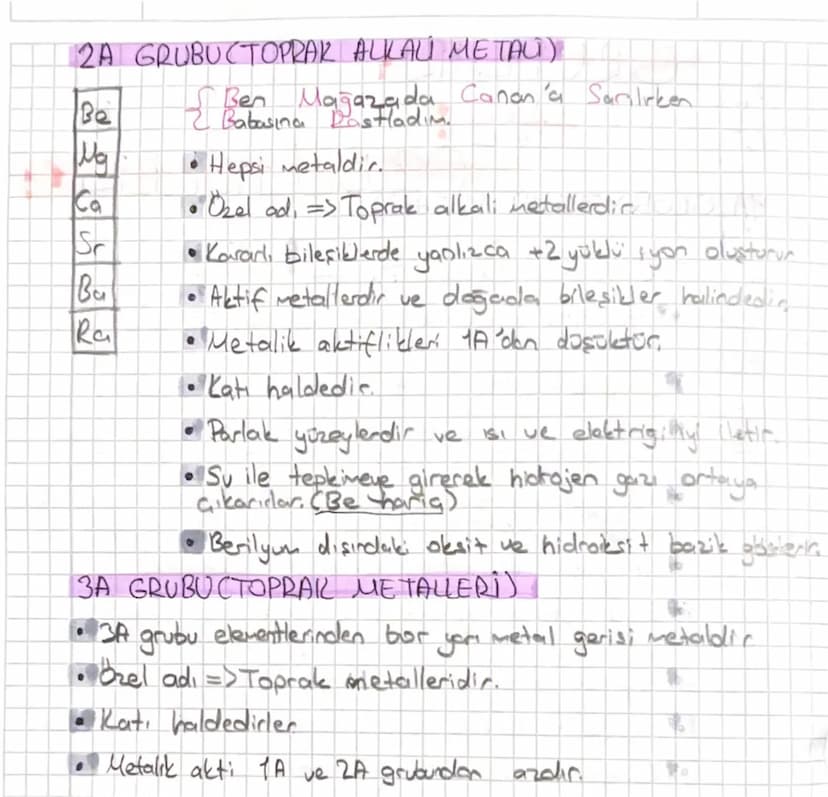 2A GRUBU(TOPRAK ALKALİ METALİ)
Be
Mg
Ca
Sr
Ba
Ra
{ Ben Mağazada Canan'a Sarılırken
Babasına Rastladım.
• Hepsi metaldir.
• Özel adı => Toprak alkali metallerdir.
• Kararlı bileşiklerde yanlızca +2 yüklü iyon oluşturur
• Aktif metallerdir ve doğada bileşikler halindedir.
• Metalik aktiflikleri 1A'dan düşüktür.
• Katı haldedir.
• Parlak yüzeylerdir ve ısı ve elektriği iyi iletir.
• Su ile tepkimeye girerek hidrojen gazı ortaya
çıkarırlar. (Be hariç)
• Berilyum dışındaki oksit ve hidroksit bazik
3A GRUBU(TOPRAK METALLERİ)
• 3A grubu elementlerinden bor yarı metal gerisi metaldir
• Özel adı => Toprak metalleridir.
• Katı haldedirler
• Metalik akti 1A ve 2A grubundan azdır.